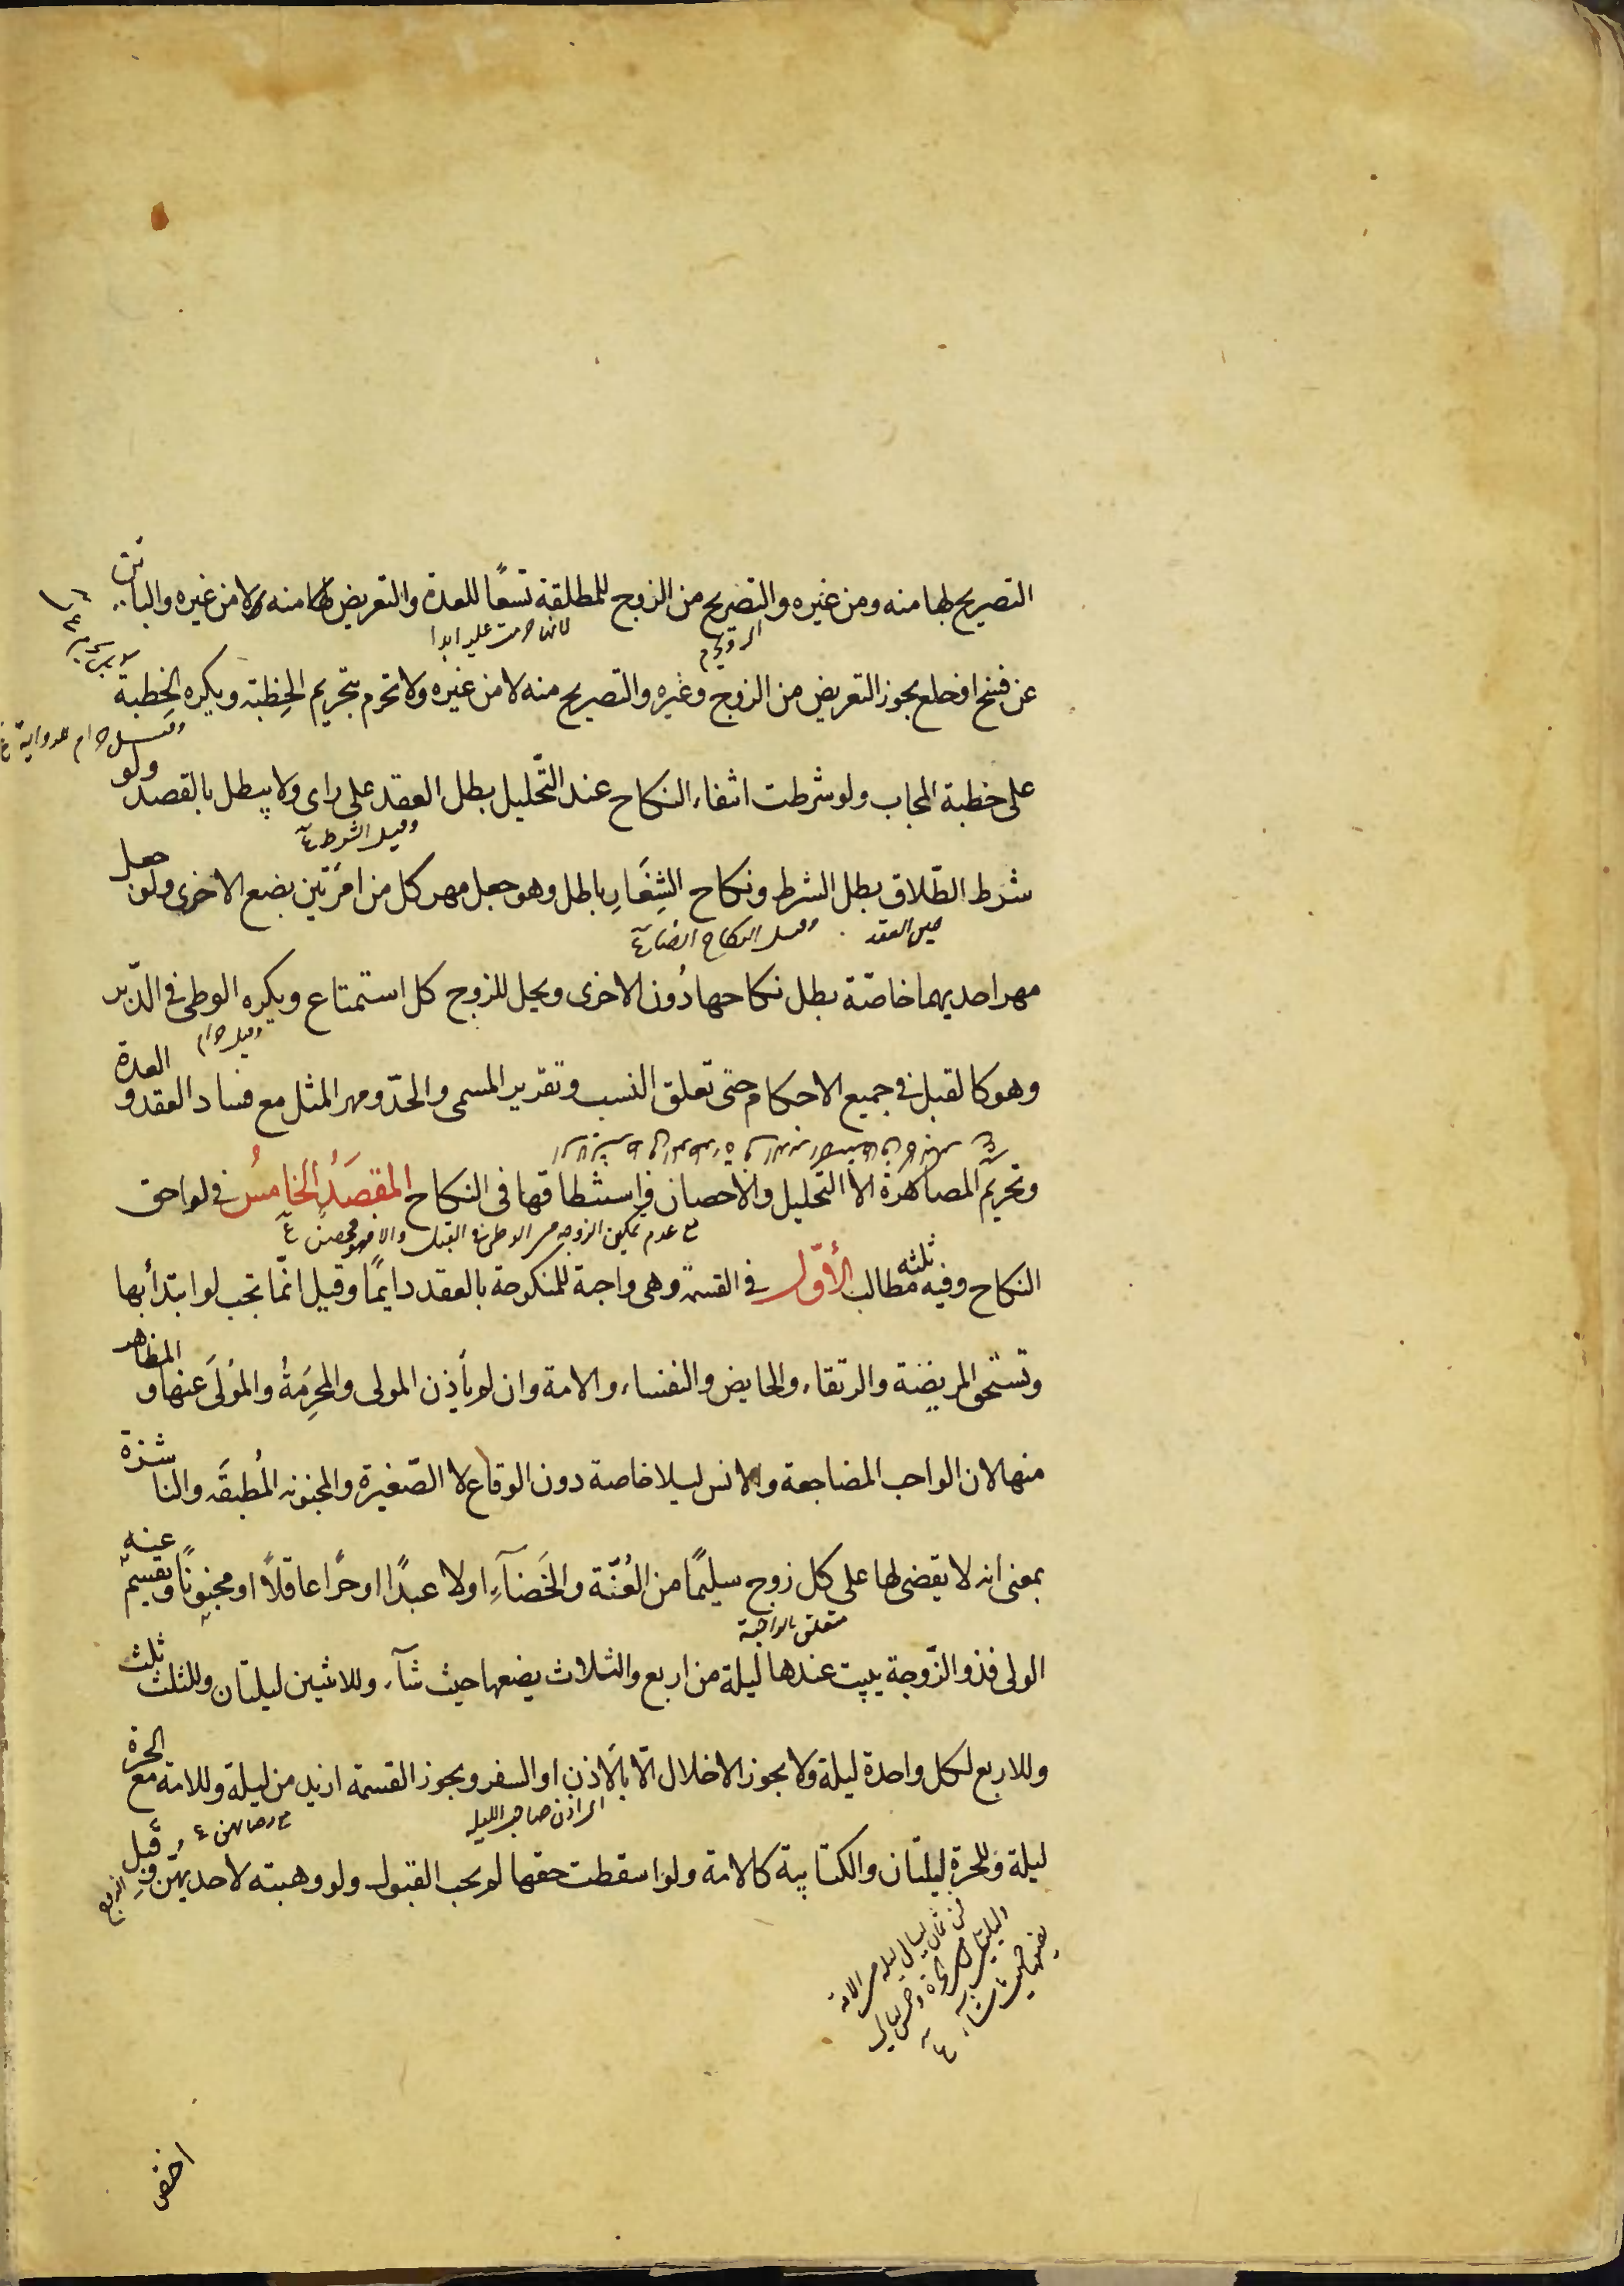 التصريح لها منه ومن غيره والتصريح من الزوج للمطلقة تسعًا للعدة والتعريض لها منه ولا من غيره والبائن
لانها حرمت عليه ابدا
عن فسخ او خلع يجوز التعريض من الزوج وغيره والتصريح منه لا من غيره ولا تحرم بتحريم الخِطبة ويكره الخِطبة
وقيل حرام للرواية
على خطبة المجاب ولو شرطت انتفاء النكاح عند التّحليل بطل العقد على راى ولا يبطل بالقصد ولو
وقيل الشرط
شرط الطّلاق بطل الشرط ونكاح الشِغَارِ باطل وهو جعل مهر كل من امرَتين بضع الاخرى ولو جعل
حين العقد وقيل النكاح ايضا
مهر احديهما خاصّة بطل نكاحها دُون الاخرى ويحل للزوج كل استمتاع ويكره الوطى فى الدّبر
وقيل حرام
وهو كالقبل فى جميع الاحكام حتى تعلق النسب وتقرير المسمى والحدّ ومهر المثل مع فساد العقد والعدة
وتحريم المصاهرة الا التحليل والاحصان واستنطاقها فى النكاح المقصَدُ الخَامسُ فى لواحق
مع عدم تمكين الزوجه من الوطى فى القبل والا فهو محصن
النكاح وفيه ثلثه مطالب الأوّل فى القسمة وهى واجبة للمنكوحة بالعقد دايمًا وقيل انمّا تجب لو ابتدأ بها
وتستحق المريضة والرتقاء والحايض والنفساء والامة وان لم يأذن المولى والمحرِمَةُ والمُولَى عنها والمظاهر
منها لان الواجب المضاجعة والانس ليلا خاصة دون الوقاع لا الصّغيرة والمجنونه المُطبقَه والناشزة
بمعنى انه لا يقضى لها على كل زوج سليمًا من العُنّة والخَصَآءِ اولا عبدًا او حرًا عاقلاً او مجنونًا ويقسم عنه
متعلق بالواجبة
الولى فذو الزّوجة يبيت عندها ليلة من اربع والثلاث يضعها حيث شآء وللاثنين ليلتان وللثلث ثلث
وللاربع لكل واحدة ليلة ولا يجوز الاخلال الّا بالاذن او السفر ويجوز القسمة ازيد من ليلة وللامة مع الحرة
اى اذن صاحبه الليله مع رضائهن
ليلة وللحرة ليلتان والكتابية كالامة ولو اسقطت حقها لم يجب القبول ولو وهبته لاحديهن وقَبِل
الزوج
من ثمان ليالى ليله من الامة
وليلتين من الحرة وخمس ليالى
يضعها حيث شاء
اختص